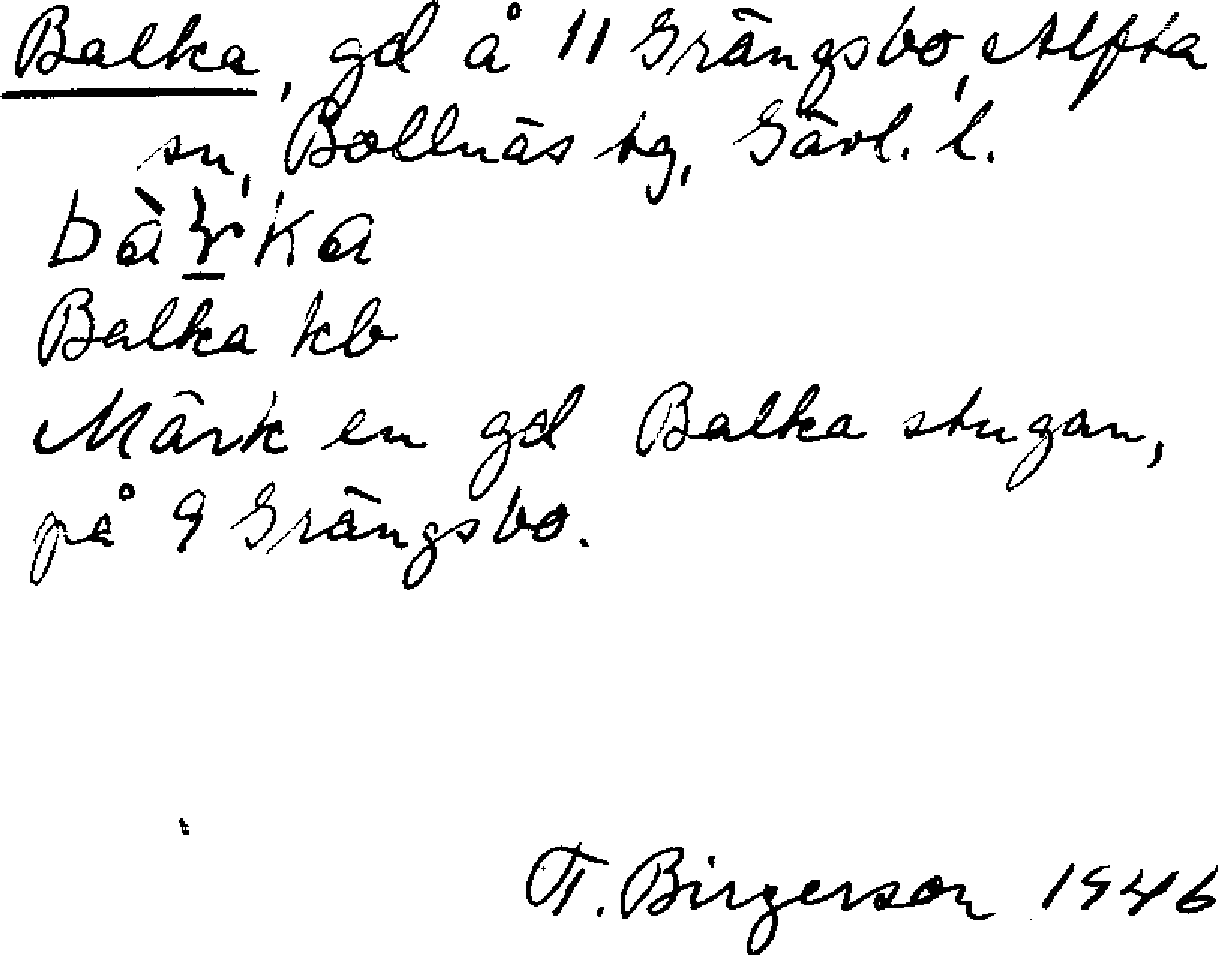 Balka, gd å 11 Grängsbo, Alfta
sn, Bollnäs tg, Gävl. l.
Balka kb
Märk en gd Balka stugan,
på 9 Grängsbo.
T. Birgerson 1946